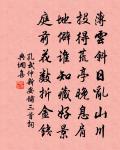 薄雲斜日亂山川
得荒亭晚息肩
地僻誰知藏好景
庭前花數折金錢
孔武仲新安鋪三首詞
典網